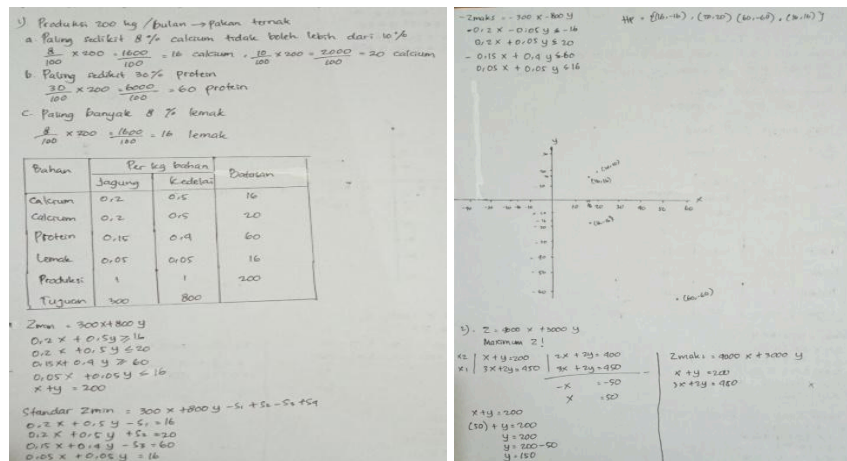 1) Produksi 200 kg /bulan → pakan ternak
a. Paling sedikit 8 % calcium tidak boleh lebih dari 10 %
8/100 x 200 = 1600/100 = 16 calcium , 10/100 x 200 = 2000/100 = 20 calcium
b. Paling sedikit 30 % protein
30/100 x 200 = 6000/100 = 60 protein
c. Paling banyak 8 % lemak
8/100 x 200 = 1600/100 = 16 lemak
Bahan | Per kg bahan | Batasan
Jagung | Kedelai
Calcium 0,2 0,5 16
Calcium 0,2 0,5 20
Protein 0,15 0,4 60
Lemak 0,05 0,05 16
Produksi 1 1 200
Tujuan 300 800
Zmin = 300x+800 y
0,2 x + 0,5y ≥ 16
0,2 x + 0,5 y ≤ 20
0,15x+ 0,4 y ≥ 60
0,05 x + 0,05 y ≤ 16
x + y = 200
Standar Zmin = 300 x +800 y - S1 + S2 - S3 + S4
0,2 x + 0,5 y - S1 = 16
0,2 x + 0,5 y + S2 = 20
0,15 x + 0,4 y - S3 = 60
0,05 x + 0,05 y = 16
- Zmaks = - 300 x - 800 y
0,2 x + 0,05 y ≤ 20
- 0,15 x + 0,4 y ≤ 60
0,05 x + 0,05 y ≤ 16
y
x
(16,-16)
(60,-60)
2). Z = 4000 x + 3000 y
Maximum Z !
x2 | x + y = 200 | 2x + 2y = 400
x1 | 3x + 2y = 450 | 3x + 2y = 450
-x = -50
x = 50
x + y = 200
(50) + y = 200
y = 200
y = 200 - 50
y = 150
Zmaks = 4000 x + 3000 y
x + y = 200
3x + 2y = 450